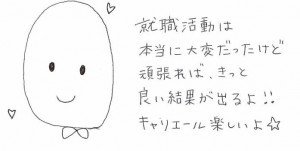 就職活動は
本当に大変だったけど
頑張れば、きっと
良い結果が出るよ!!
キャリエール楽しいよ☆